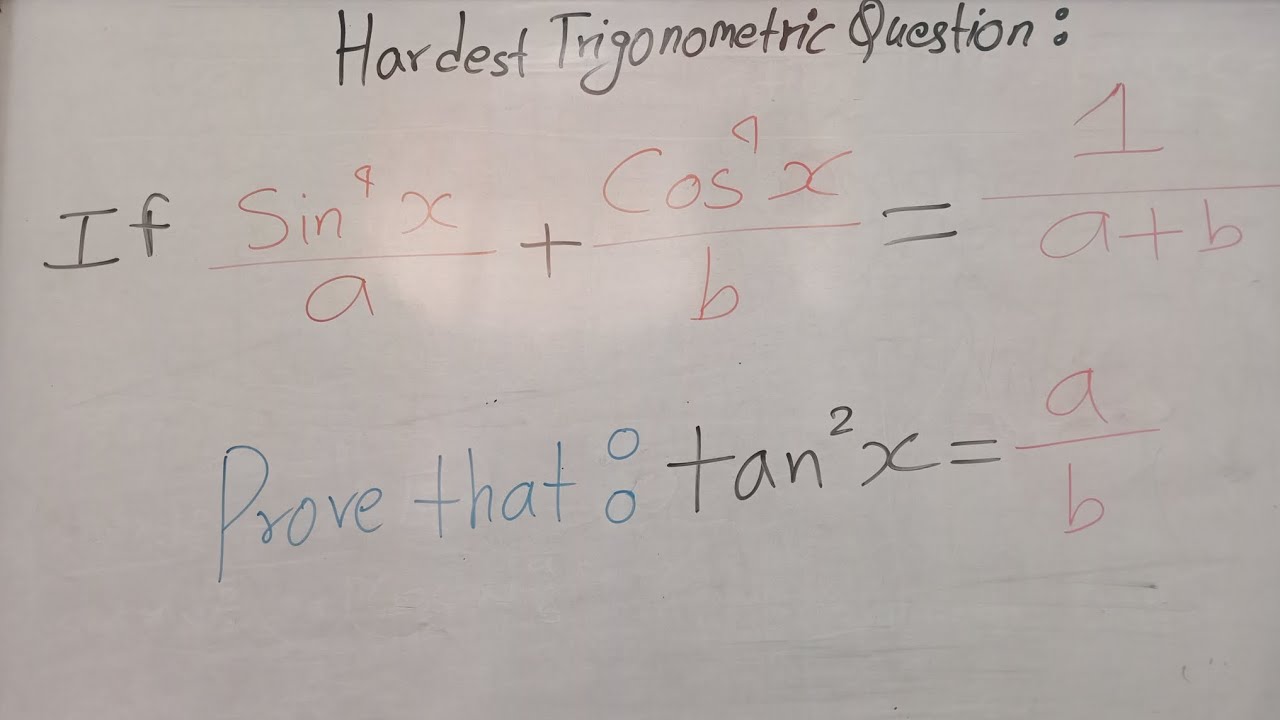 Hardest Trigonometric Question:
If Sin⁴x/a + Cos⁴x/b = 1/(a+b)
Prove that: tan²x = a/b